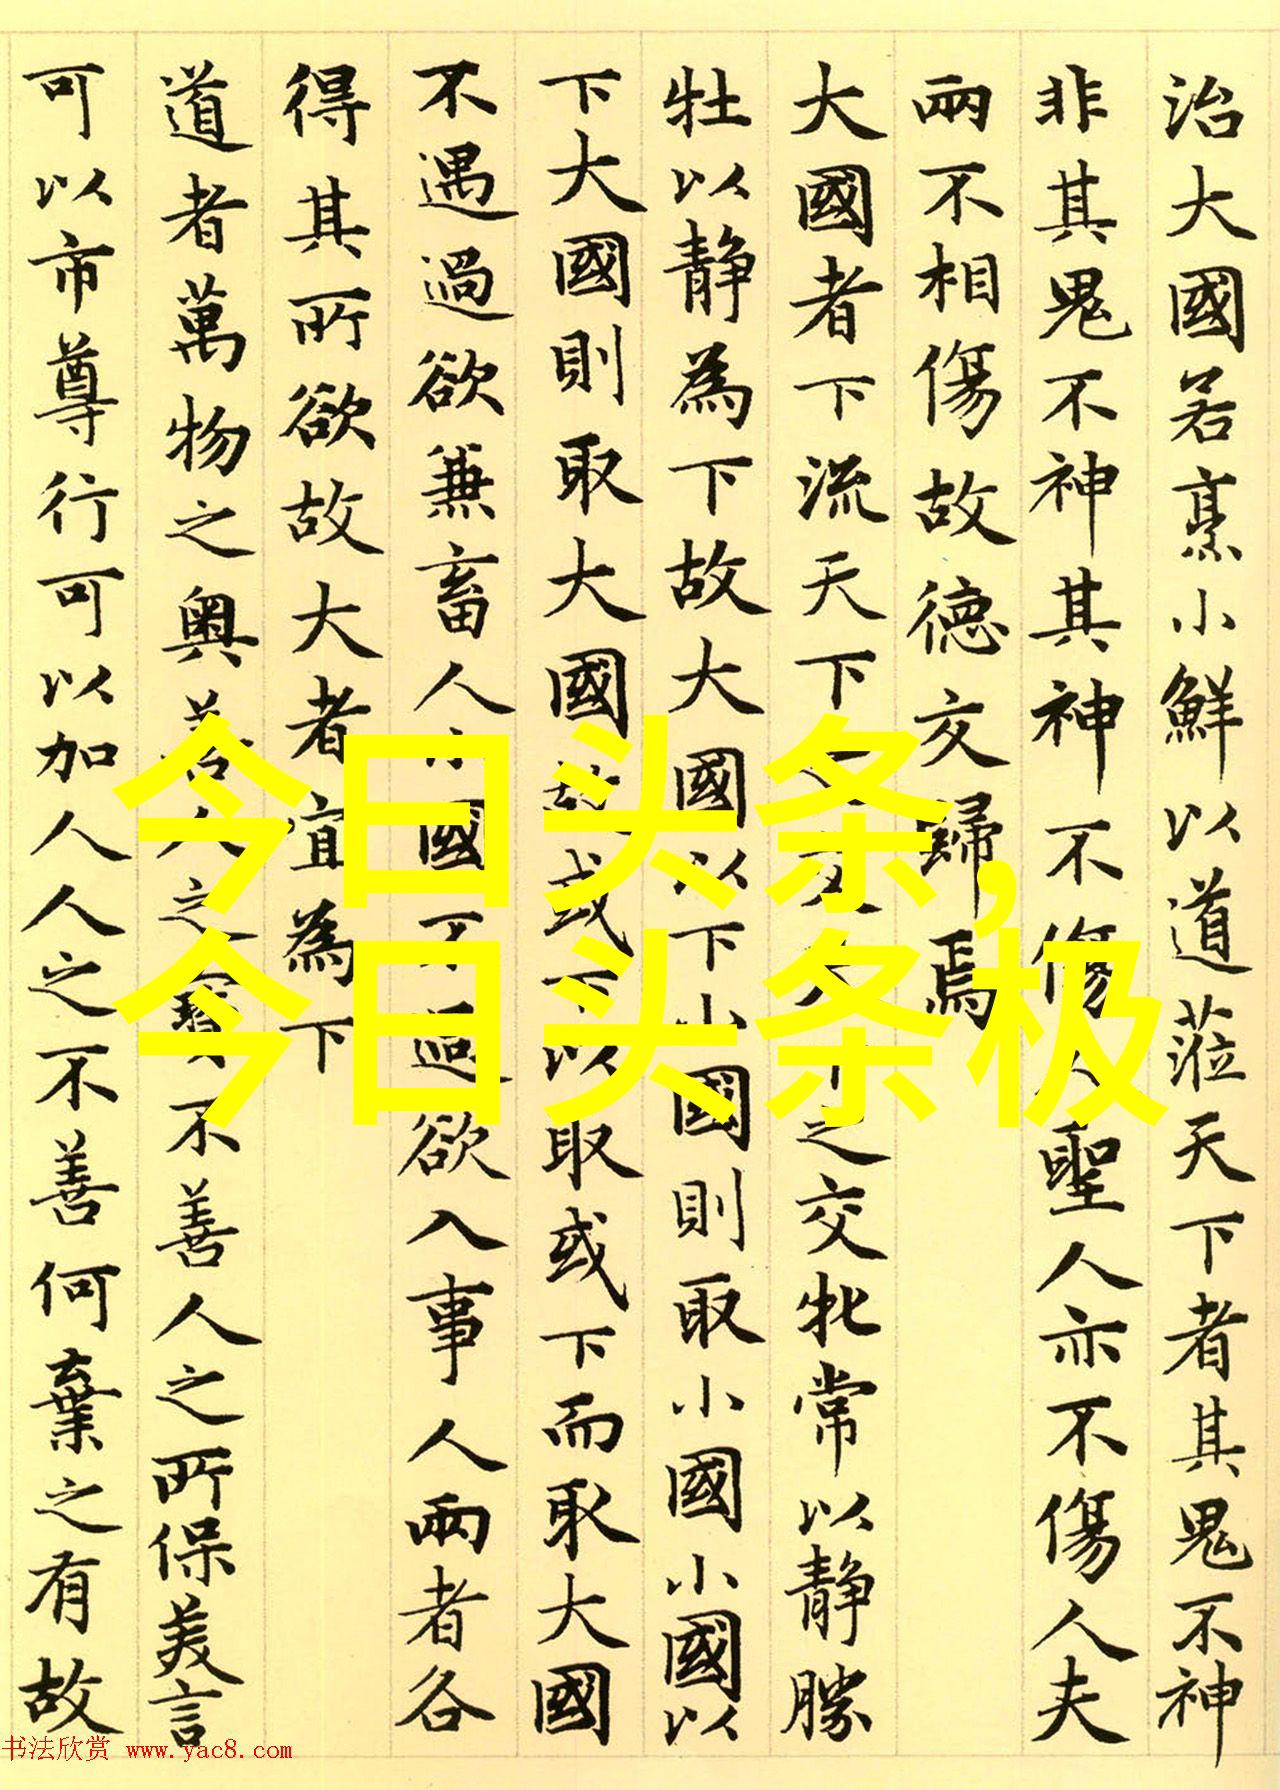 治大國若烹小鮮以道蒞天下者其鬼不神
非其鬼不神其神不傷人聖人亦不傷人夫
兩不相傷故德交歸焉
大國者下流天下之交天下之交牝常以静勝
牡以静為下故大國以下小國則取小國小國以
下大國則取大國故或下以取或下而取大國
不遇過欲兼畜人小國不過欲入事人兩者各
得其所欲故大者宜為下
道者萬物之奥善人之寶不善人之所保美言
可以市尊行可以加人人之不善何棄之有故
今日头条,
今日头条极
书法欣赏 www.yac8.com